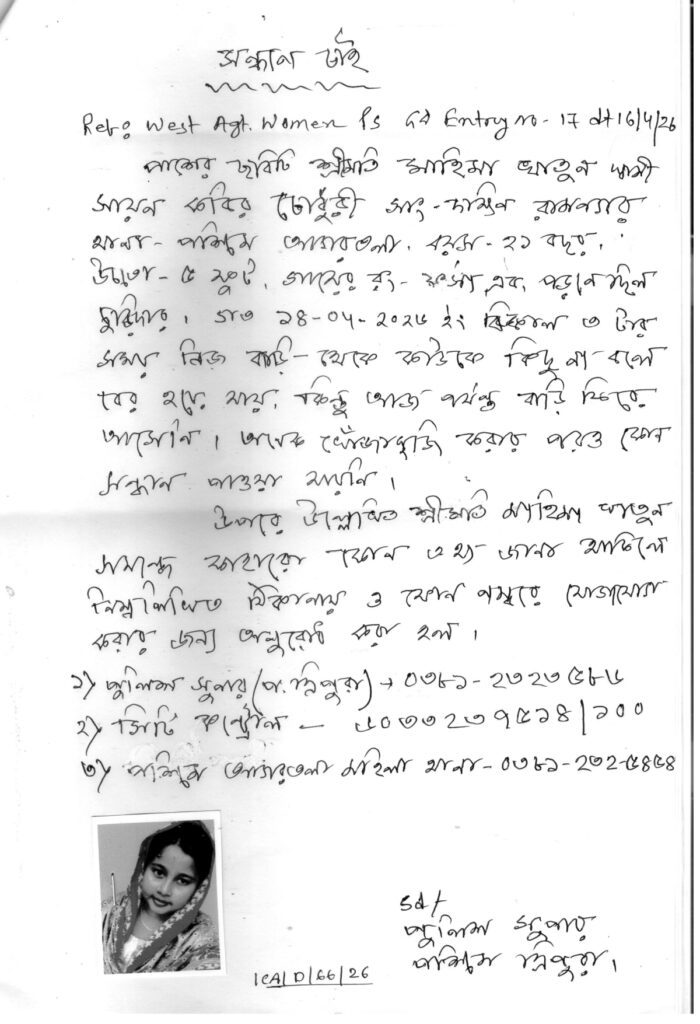 সন্ধান চাই
Ref: West Agt. Women PS GD Entry no- 17 dt 16/4/26
পাশের ছবিটি শ্রীমতি মাহিমা খাতুন স্বামী
সায়ন কবির চৌধুরী সাং- দক্ষিন রামনগর
থানা- পশ্চিম আগরতলা, বয়স- ২১ বছর,
উচ্চতা- ৫ ফুট, গায়ের রং- ফর্সা এবং পড়নে ছিল
চুরিদার। গত ১৪-০৪-২০২৬ ইং বিকাল ৩ টার
সময় নিজ বাড়ি- থেকে কাউকে কিছু না বলে
বের হয়ে যায়, কিন্তু আজ পর্যন্ত বাড়ি ফিরে
আসেনি। অনেক খোঁজাখুজি করার পরও কোন
সন্ধান পাওয়া যায়নি।
উপরে উল্লেখিত শ্রীমতি মাহিমা খাতুন
সমন্ধে কাহারো কোন তথ্য জানা থাকিলে
নিম্নলিখিত ঠিকানায় ও ফোন নম্বরে যোগাযোগ
করার জন্য অনুরোধ করা হল।
১) পুলিশ সুপার (প. ত্রিপুরা) → ০৩৮১-২৩২৩৫৮৬
২) সিটি কন্ট্রোল — ৬০৩৩২৩৭৫১৪/১০০
৩) পশ্চিম আগরতলা মহিলা থানা- ০৩৮১-২৩২-৫৪৫৪
sd/
পুলিশ সুপার
পশ্চিম ত্রিপুরা।
ICA/D/66/26